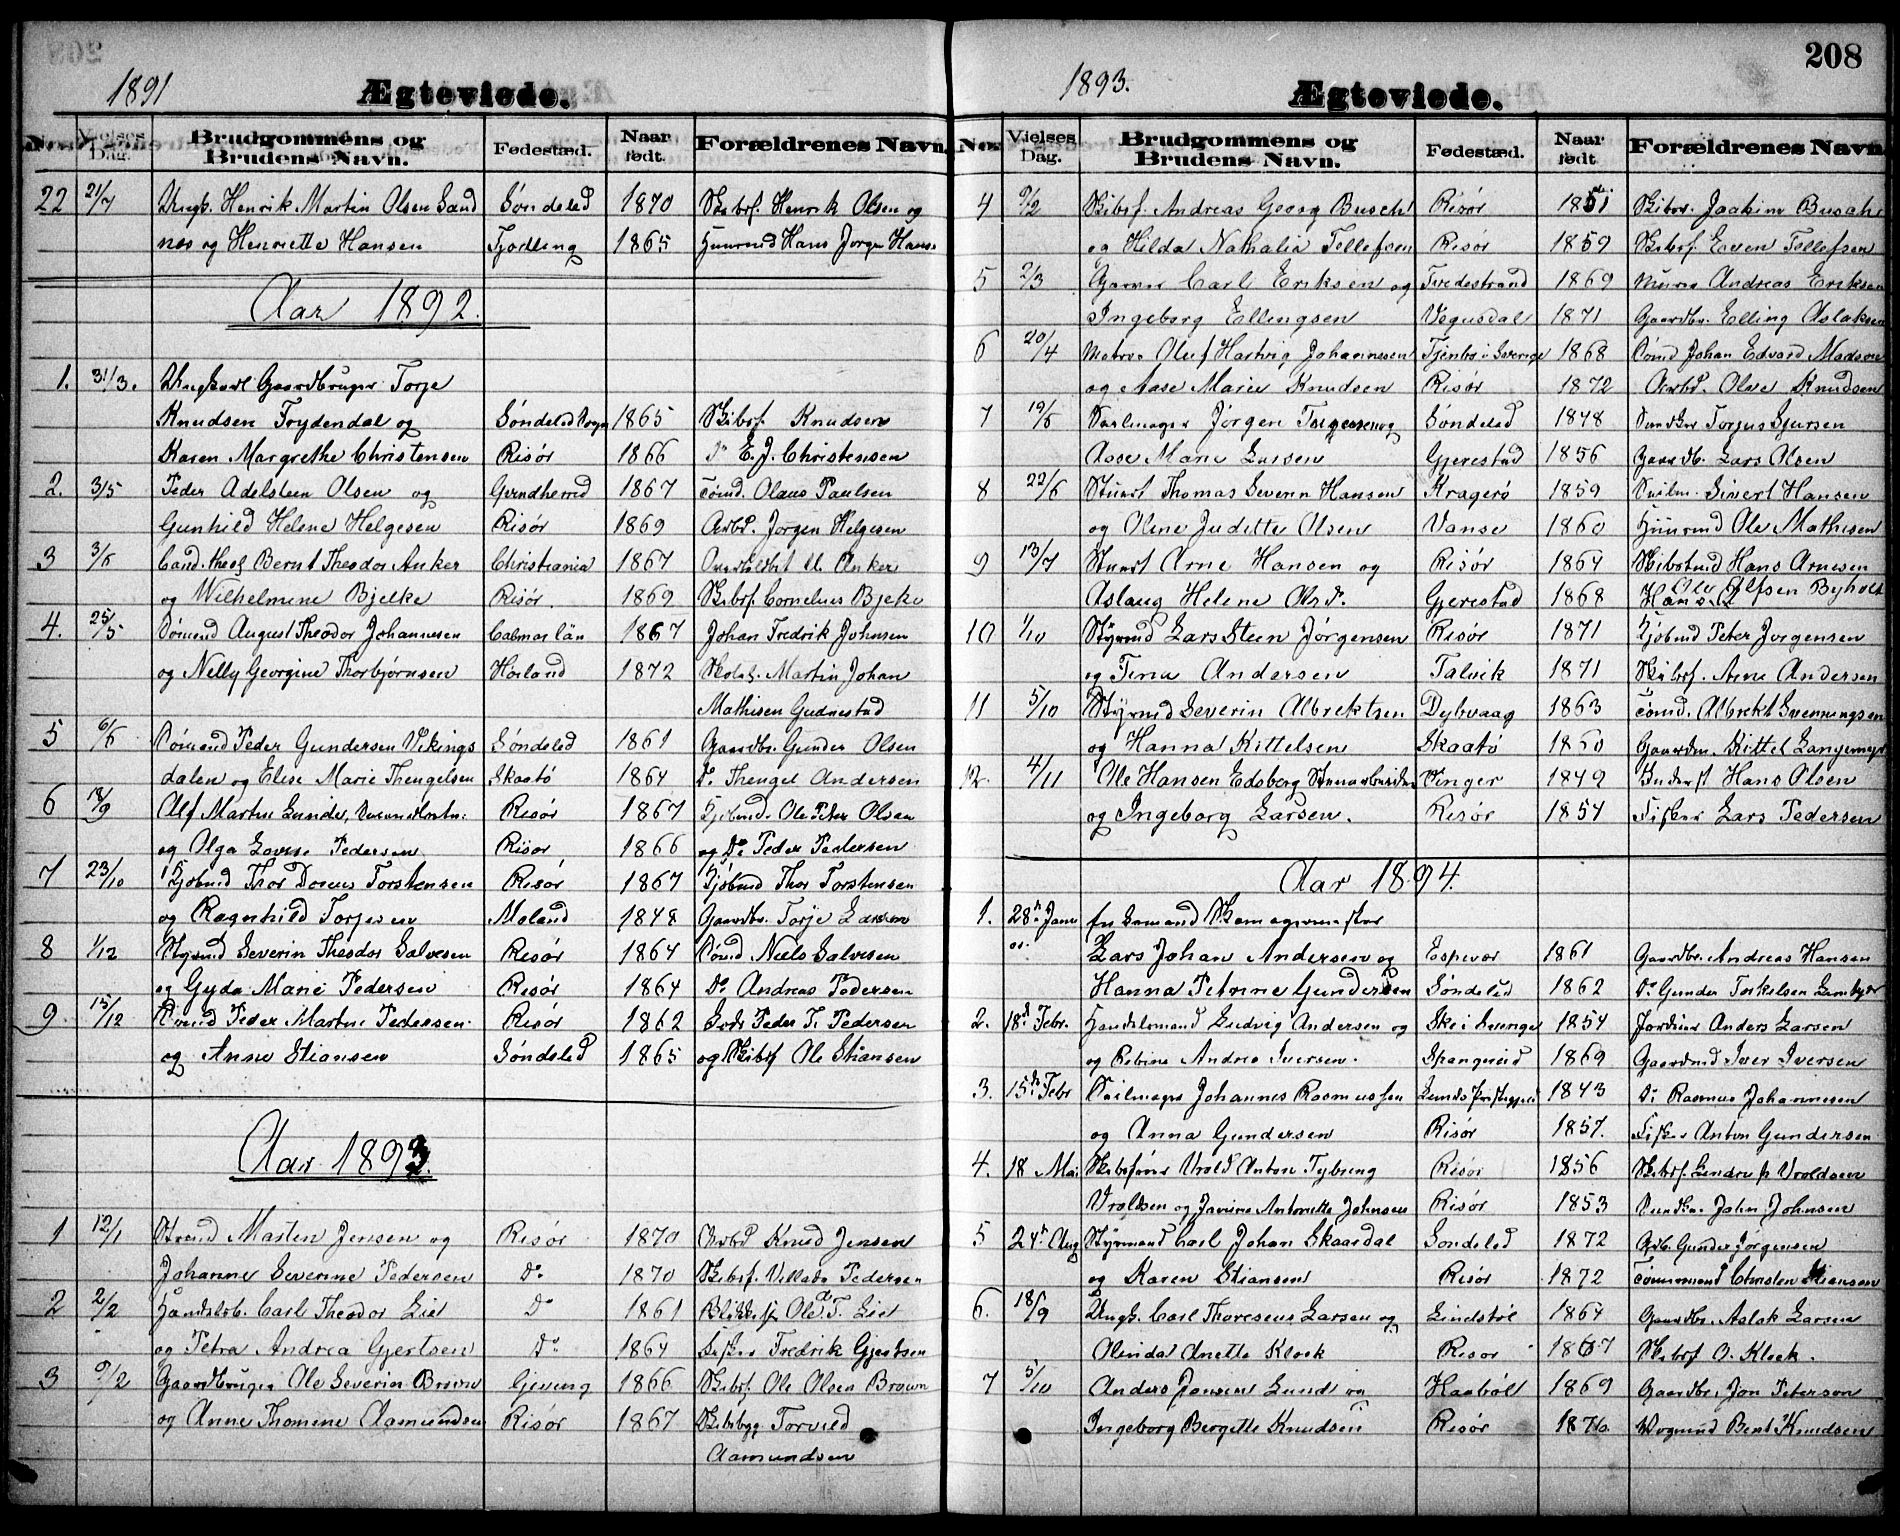 1891
Ægteviede.
No.
Vielses Dag.
Brudgommens og Brudens Navn.
Fødestæd.
Naar født.
Forældrenes Navn.
22 21/7 Ungk. Henrik Martin Olsen Sand Søndeled 1870 Skibsf. Henrik Olsen og
næs og Henriette Hansen Tjødling 1865 Huusmd Hans Jørgen Hans.
Aar 1892.
1. 31/3. Ungkarl Gaardbruger Torje
Knudsen Frydendal og Søndeled Sogn 1865 Skibsf. Knudsen
Karen Margrethe Christensen Risør 1866 Do E. J. Christensen
2. 3/5 Peder Adelsteen Olsen og 1867 Tømd. Olaus Paulsen
Gunhild Helene Helgesen Risør 1869 Arbd. Jørgen Helgesen
3 3/5 Cand. theol Bernt Theodor Anker Christiania 1867 Anker
og Wilhelmine Bjelke Risør. 1869 Skibsf. Cornelius Bjelke
4. 25/5 Sømand August Theodor Johannesen Calmar län 1867 Johan Fredrik Johnsen
og Nelly Georgine Thorbjørnsen 1872 Martin Johan
Mathisen
5 6/5 Sømand Peder Gundersen Vikings Søndeled 1861 Gaardbr. Gunder Olsen
dalen og Elise Marie Thengelsen Skaatø 1864 Do. Thengel Andersen
6 18/9 Alf Martin Lunde, Risør 1867 Ole Peter Olsen
og Olga Lovise Pedersen Risør 1866 og Do Peder Pedersen
7 23/10 Torstensen Risør 1867 Thor Torstensen
og Ragnhild Torjesen Moland 1848 Gaardbr. Torje Larsen
8 1/12 Styrmd Severin Theodor Salvesen Risør 1864 Sømd Niels Salvesen
og Gyda Marie Pedersen Risør 1864 Do Andreas Pedersen
9. 15/12 Sømd Peder Martin Pedersen. Risør 1862 Lods Peder T. Pedersen
og Anne Stiansen Søndeled 1865 og Skibsf Ole Stiansen
Aar 1893.
1 12/1 Martin Jensen og Risør 1870 Arbd Knud Jensen
Johanne Severine Pedersen Do 1870 Skibsf. Villads Pedersen
2 2/2 Handelsb. Carl Theodor Lie Do 1861 Ole T. Lie
og Petra Andrea Gjertsen Do 1864 Fisker Fredrik Gjertsen
3 9/2 Gaardbruger Ole Severin Brown Gjeving 1866 Skibsf. Ole Olsen Brown
og Anne Thomine Aamundsen Risør 1867 Skibsbyg Torvild
Aamundsen
208
1893.
Ægteviede.
No.
Vielses Dag.
Brudgommens og Brudens Navn.
Fødestæd.
Naar født.
Forældrenes Navn.
4 9/2 Skibsf. Andreas Georg Busch Risør 1851 Joakim Busch
og Hilda Nathalia Tellefsen Risør 1859 Skibsf. Even Tellefsen
5 2/3 Garver Carl Eriksen og Tvedestrand 1869 Murer Andreas Eriksen
Ingeborg Ellingsen Vegusdal 1871 Gaardbr. Elling Aslaksen
6 20/4 Matros Oluf Hartvig Johannesen i Sverige 1868 Sømd Johan Edvard Madsen
og Aase Marie Knudsen Risør 1872 Arbd. Ole Knudsen
7 19/5 Seilmager Jørgen Torgersen og Søndeled 1848 Torjus Gjursen
Aase Marie Larsen Gjerestad 1856 Gaardb. Lars Olsen
8 22/6 Stuert Thomas Severin Hansen Kragerø 1859 Sivert Hansen
og Oline Juditte Olsen Vanse 1860 Huusmd Ole Mathisen
9 13/7 Stuert Arne Hansen og Risør 1864 Skibstmd Hans Arnesen
Aslaug Helene Olsd. Gjerestad 1868 Ole Olfsen Byholt
10 1/10 Styrmd Lars Steen Jørgensen Risør 1871 Kjøbmd Peter Jørgensen
og Tina Andersen Talvik 1871 Skibsf. Arne Andersen
11 5/10 Styrmd Severin Albrektsen Dybvaag 1863 Tømd. Albrekt Svenningsen
og Hanna Kittelsen Skaatø 1860 Gaardm. Kittel Langemyr
12. 4/11 Ole Hansen Edsberg Vinger 1849 Hans Olsen
og Ingeborg Larsen. Risør 1854 Fisker Lars Pedersen
Aar 1894.
1. 28de Janu
ar. Lars Johan Andersen og Espevær 1861 Gaardbr. Andreas Hansen
Hanna Petrine Gundersen Søndeled 1862 Do Gunder Terkelsen
2. 18de Febr. Handelsmand Ludvig Andersen og Ske i Sverige 1854 Anders Larsen
og Andrea Iversen. Spangreid 1869 Gaardmd Iver Iversen
3. 15de Febr Seilmager Johannes Rasmussen 1843 Do Rasmus Johannesen
og Anna Gundersen Risør 1857. Fisker Anton Gundersen
4. 18 Mai Skibsfører Vrold Anton Tybring Risør 1856 Skibsf. Vroldsen
Vroldsen og Antonette Johnsen Risør 1853 John Johnsen
5 24de Aug Styrmand Carl Johan Skaardal Søndeled 1872 Arb. Gunder Jørgensen
og Karen Stiansen Risør 1872 Tømmermand Christen Stiansen
6. 18/9 Ungk. Carl Thoresens Larsen og 1864 Gaardbr. Aslak Larsen
Olinda Anette Klock Risør 1867 Skibsf O. Klock.
7 5/10 Anders Jensen Lunde og 1869 Gaardbr. Jon Peterson
Ingeborg Bergitte Knudsen Risør 1870. Bent Knudsen